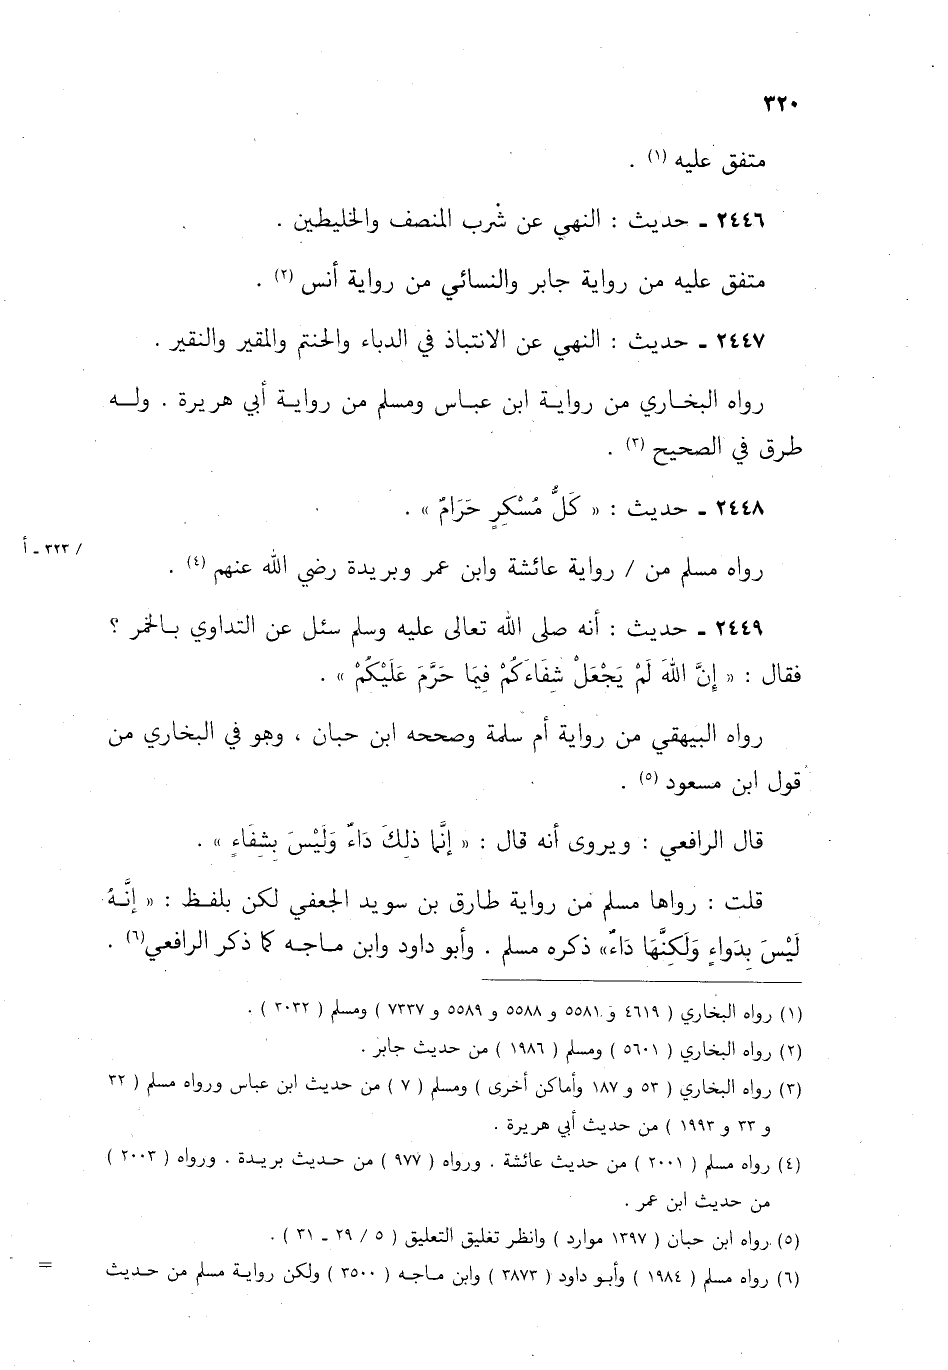 ٣٢٠
متفق عليه (١) .
٢٤٤٦ ـ حديث : النهي عن شْرب المنصف والخليطين .
متفق عليه من رواية جابر والنسائي من رواية أنس (٢) .
٢٤٤٧ ـ حديث : النهي عن الانتباذ في الدباء والحنتم والمقير والنقير .
رواه البخاري من رواية ابن عباس ومسلم من رواية أبي هريرة . وله
طرق في الصحيح (٣) .
٢٤٤٨ ـ حديث : « كَلُّ مُسْكِرٍ حَرَامٌ » .
رواه مسلم من / رواية عائشة وابن عمر وبريدة رضي الله عنهم (٤) .
/ ٣٢٣ ـ أ
٢٤٤٩ ـ حديث : أنه صلى الله تعالى عليه وسلم سئل عن التداوي بالخمر ؟
فقال : « إِنَّ اللهَ لَمْ يَجْعَلْ شِفَاءَكُمْ فِيمَا حَرَّمَ عَلَيْكُمْ » .
رواه البيهقي من رواية أم سلمة وصححه ابن حبان ، وهو في البخاري من
قول ابن مسعود (٥) .
قال الرافعي : ويروى أنه قال : « إِنَّمَا ذلِكَ دَاءٌ وَلَيْسَ بِشِفَاءٍ » .
قلت : رواها مسلم من رواية طارق بن سويد الجعفي لكن بلفظ : « إِنَّهُ
لَيْسَ بِدَواءٍ وَلَكِنَّهَا دَاءٌ» ذكره مسلم . وأبو داود وابن ماجه كما ذكر الرافعي(٦) .
(١) رواه البخاري ( ٤٦١٩ و ٥٥٨١ و ٥٥٨٨ و ٥٥٨٩ و ٧٣٣٧ ) ومسلم ( ٣٠٣٢ ) .
(٢) رواه البخاري ( ٥٦٠١ ) ومسلم ( ١٩٨٦ ) من حديث جابر .
(٣) رواه البخاري ( ٥٣ و ١٨٧ وأماكن أخرى ) ومسلم ( ٧ ) من حديث ابن عباس ورواه مسلم ( ٣٢
و ٣٣ و ١٩٩٣ ) من حديث أبي هريرة .
(٤) رواه مسلم ( ٢٠٠١ ) من حديث عائشة . ورواه ( ٩٧٧ ) من حديث بريدة . ورواه ( ٢٠٠٣ )
من حديث ابن عمر .
(٥) رواه ابن حبان ( ١٣٩٧ موارد ) وانظر تغليق التعليق ( ٥ / ٢٩ ـ ٣١ ) .
(٦) رواه مسلم ( ١٩٨٤ ) وأبو داود ( ٣٨٧٣ ) وابن ماجه ( ٣٥٠٠ ) ولكن رواية مسلم من حديث
=